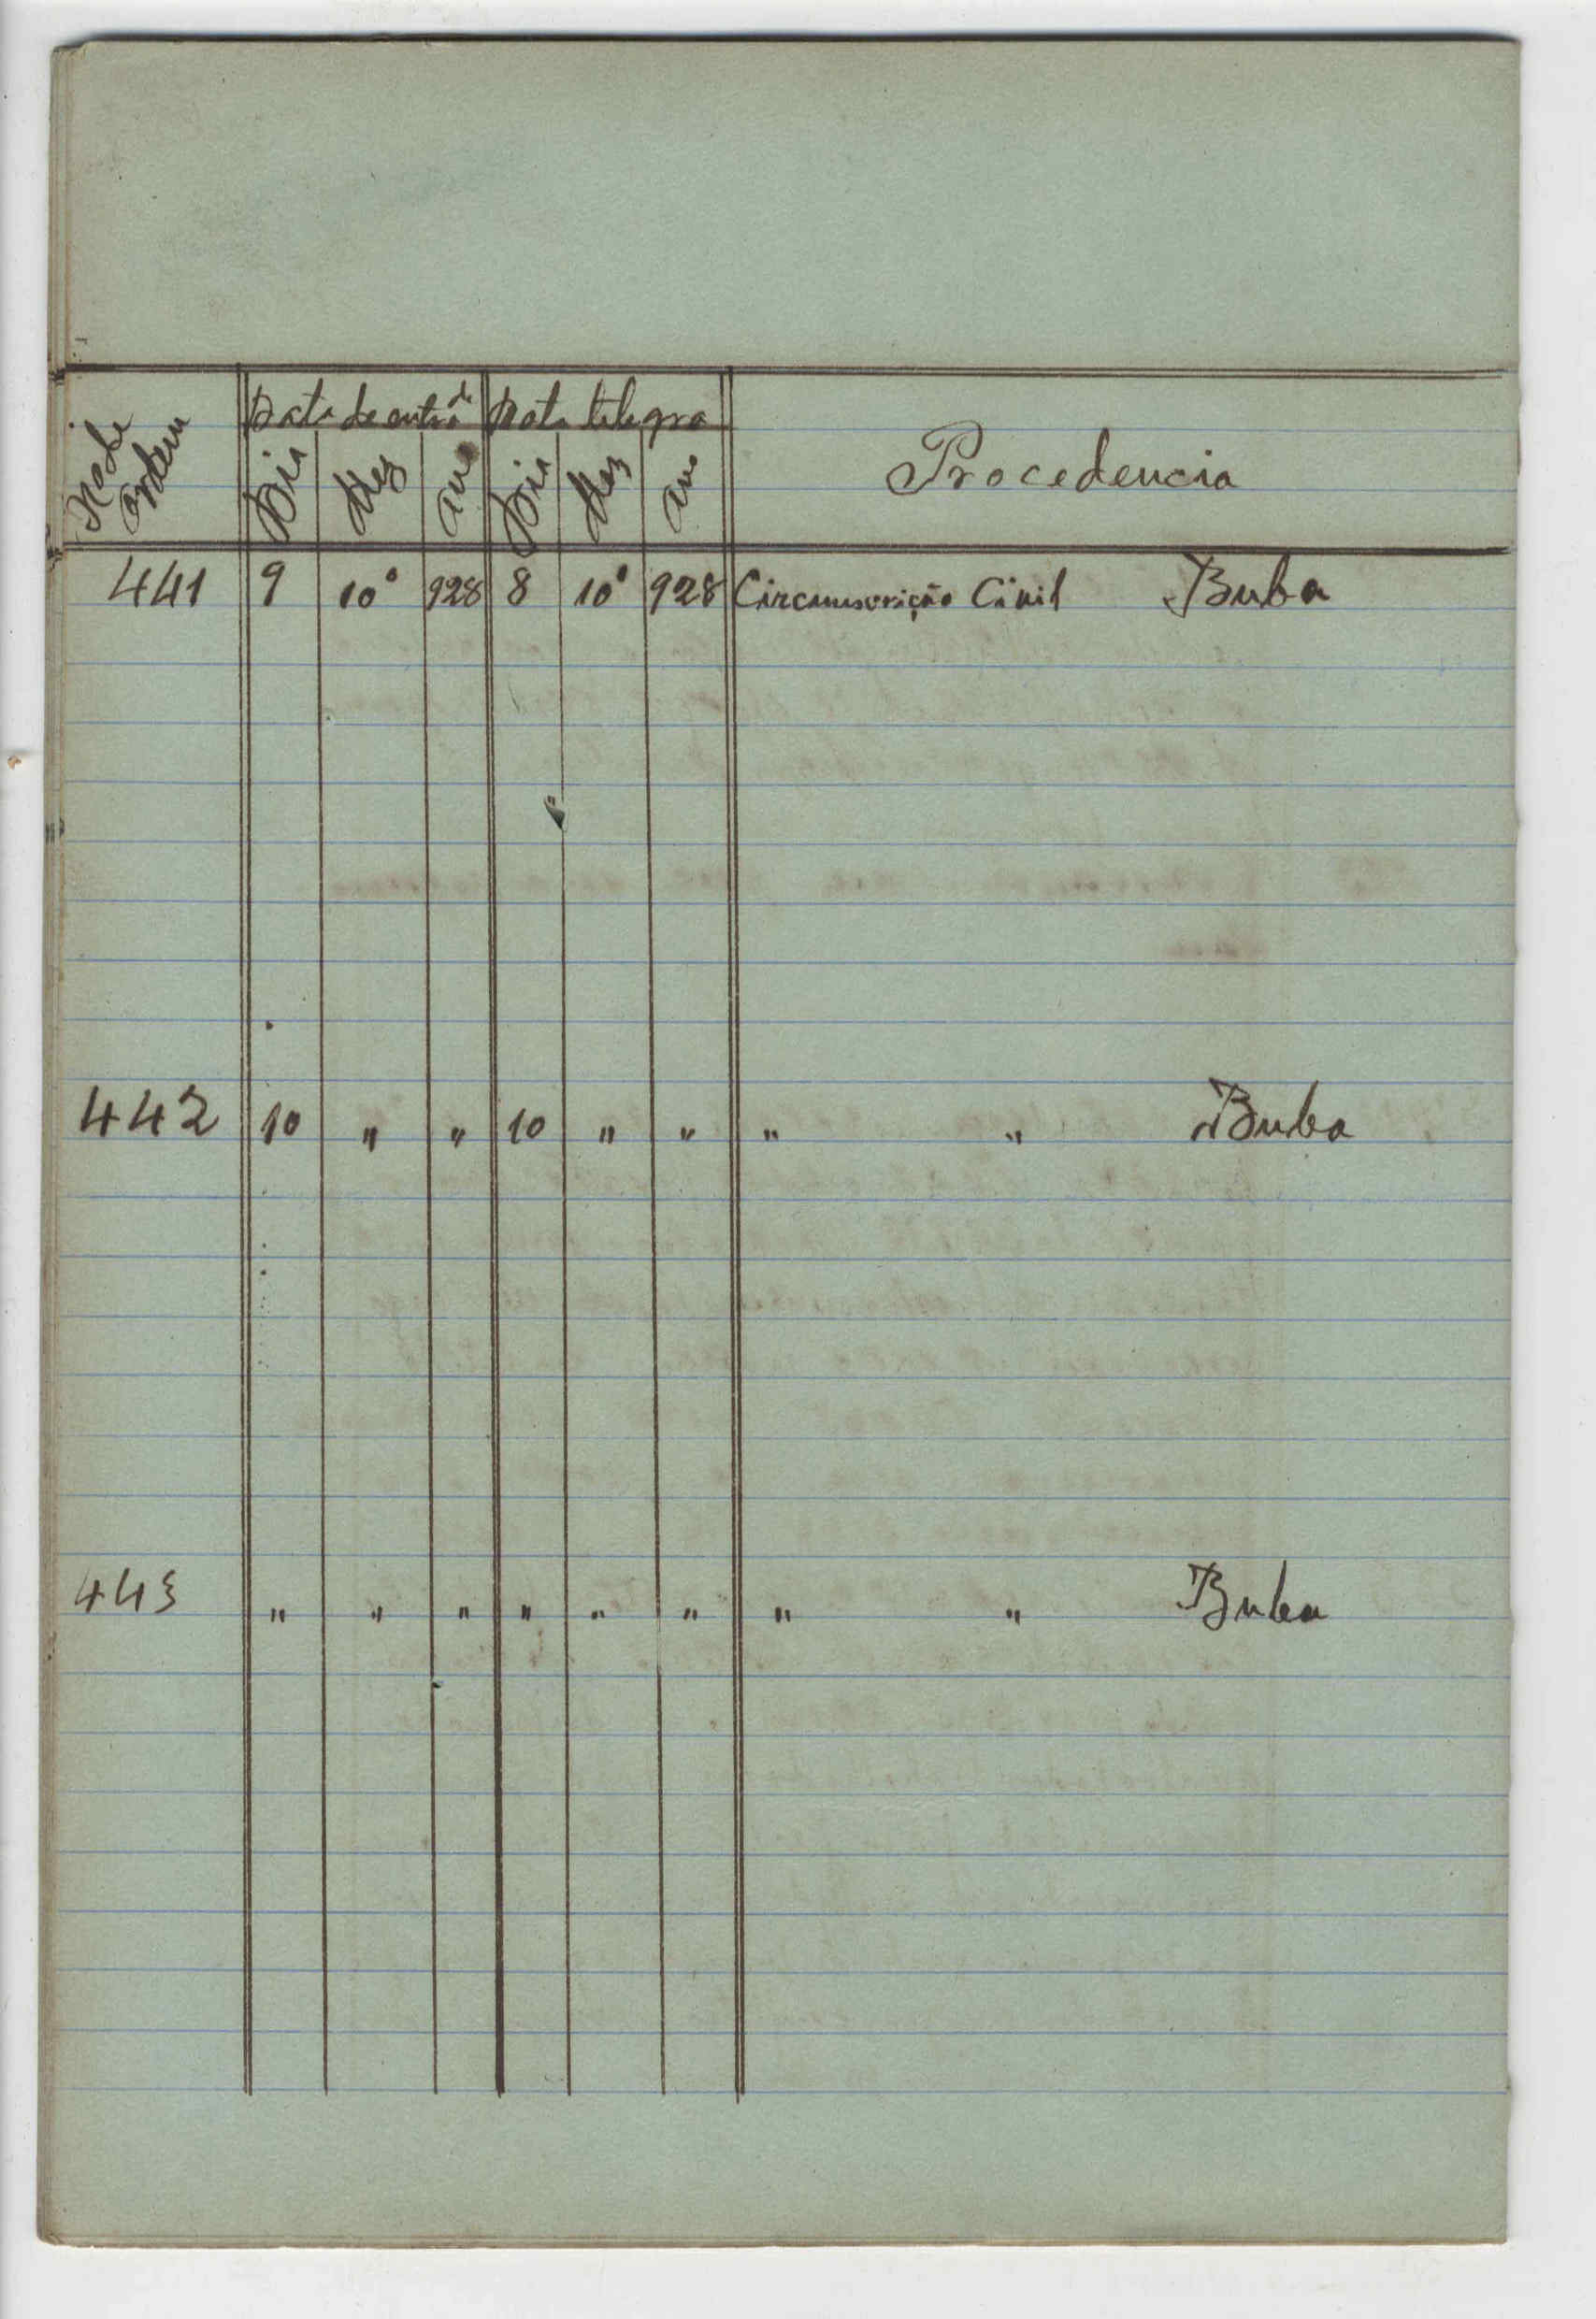 No de ordem
Data de entrade Data telegra
Dia Mez ano Dia Mez ano
Procedencia
441 9 10º 928 8 10º 928 Circumscrição Civil Buba
442 10 " " 10 " " " " Buba
443 " " " " " " " " Buba